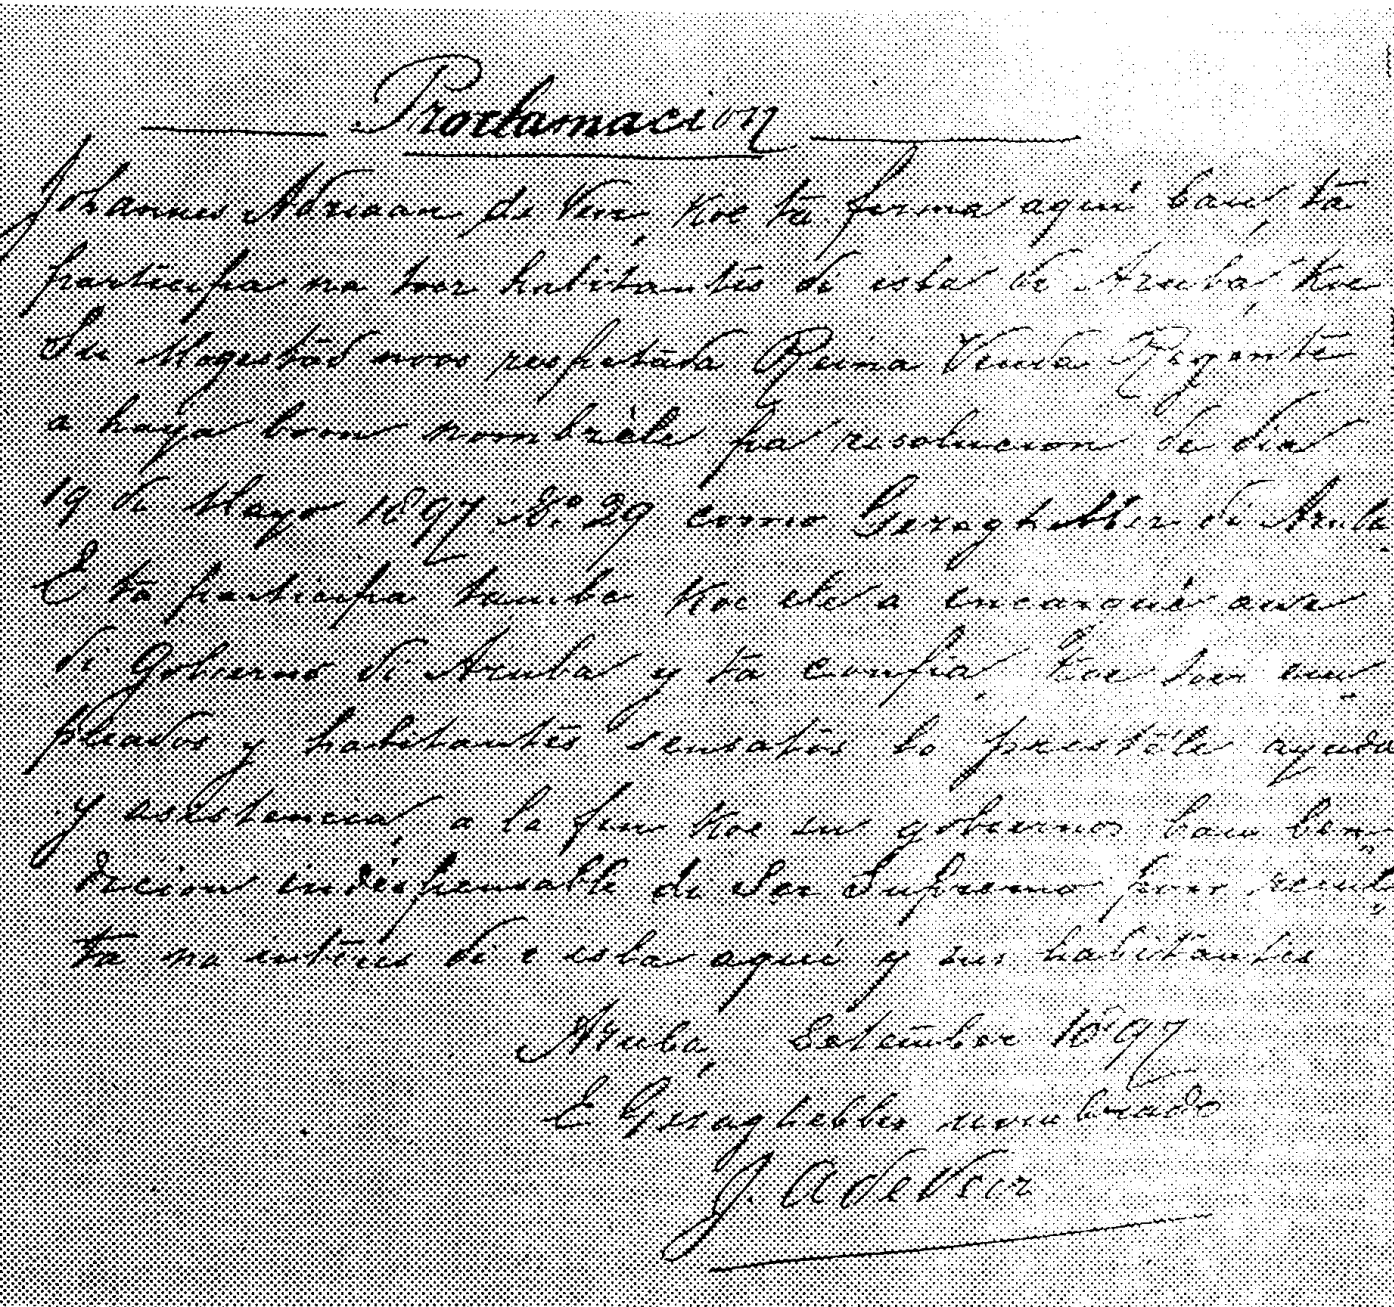 Proclamacion
Johannes Adriaan de Veer, koe ta firma aqui bau, ta
participa na toer habitantes di isla di Aruba, koe
Su Magestad noos respetada Reina Viuda Regente
a haya boon nombrele pa resolucion de dia
19 di Mayo 1897 No. 29 como Gezaghebber di Aruba.
E ta participa tambe koe ele a encargué awe
di Gobierno di Aruba y ta confia, koe toer em
pleados y habitantes sensatos lo prestéle ayuda
y asistencia, a la fin koe su gobierno, bau ben
dicion indispensable di Ser Supremo, por resul
ta na interes di e isla aqui y sus habitantes
Aruba, September 1897
E Gezaghebber nombrado
J. A de Veer